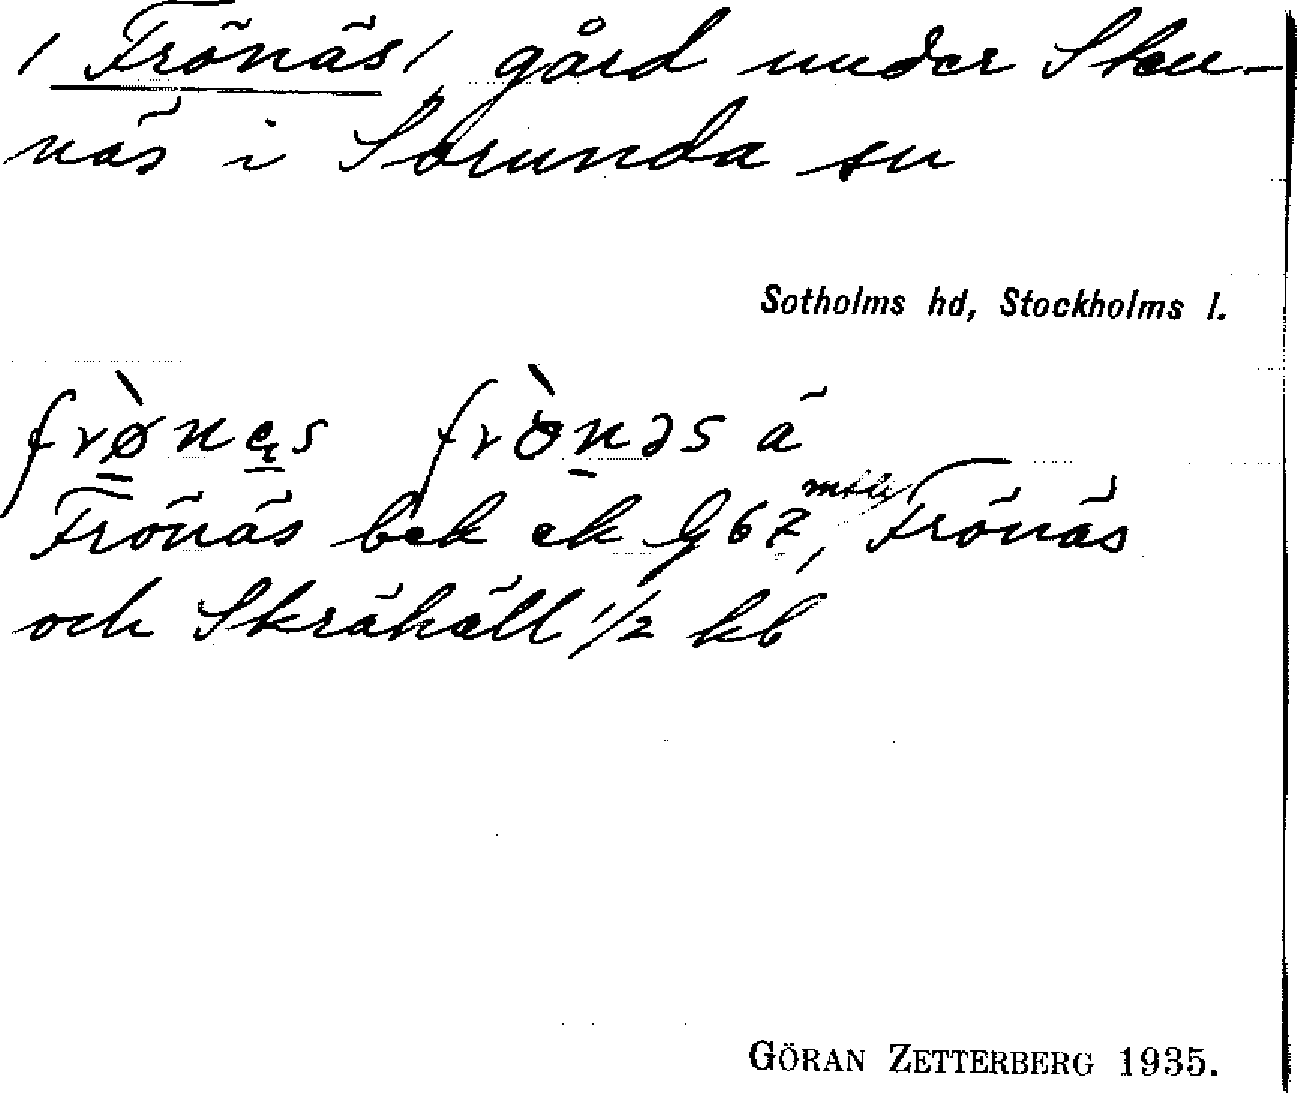 / Frönäs / gård under Sten-
näs i Sorunda sn
Sotholms hd, Stockholms l.
frø̀nęs frö̀nəs ä
Frönäs bek ek G 67, Frönäs
och Skrähäll 1/2 kb
GÖRAN ZETTERBERG 1935.